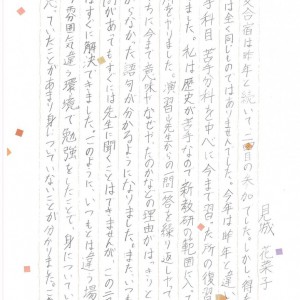 見城 花菜子
合宿は昨年と続いて二回目の参加でした。しかし、得
は全く同じものではありませんでした。今年は昨年と違
手科目、苦手分科を中心に今まで習った所の復習
ました。私は歴史が苦手なので新敎研の範囲に入っ
をやりました。演習と先生からの問一答を繰り返しや
ちに今まで意味やなぜ
なかった語句が分かるようになりました。また、いつも
何があってもすぐには先生に聞くことはできませんが、この
はすぐに解決できました。このように、いつもとは違う場
う雰囲気違う環境で勉強をしたことで、身についてい
ていたことがあまり身についていないことが分かりました。